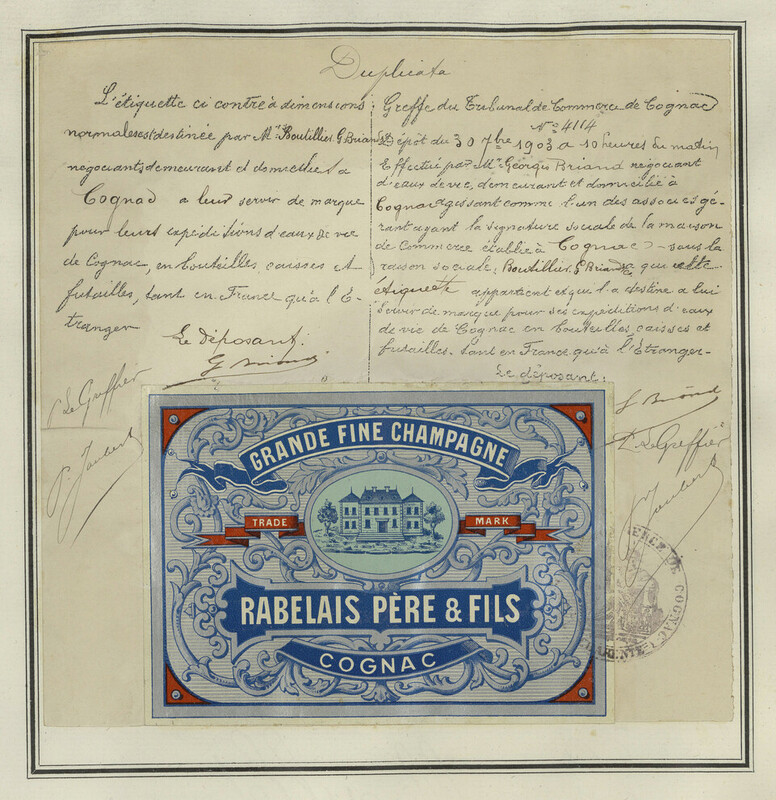 Duplicata
L'étiquette ci contre à dimensions
normales est destinée par Mrs Boutillier G Briand
négociants demeurant et domiciliés à
Cognac à leur servir de marque
pour leurs expéditions d'eaux de vie
de Cognac, en bouteilles, caisses et
futailles, tant en France qu'à l'É-
tranger
Le déposant.
G Briand
p Le Greffier
P. Joubert
Greffe du Tribunal de Commerce de Cognac
No 4114
Dépôt du 30 7bre 1903 à 10 heures du matin
Effectué par Mr Georges Briand négociant
d'eaux de vie, demeurant et domicilié à
Cognac agissant comme l'un des associés gé-
rant ayant la signature sociale de la maison
de Commerce établie à Cognac sous la
raison sociale; Boutillier G Briand que cette
étiquette appartient et que l'a destine à lui
servir de marque pour ses expéditions d'eaux
de vie de Cognac en bouteilles, caisses et
futailles. tant en France qu'à l'Étranger-
Le déposant:
G Briand
P. Le Greffier
Joubert
GRANDE FINE CHAMPAGNE
TRADE MARK
RABELAIS PÈRE & FILS
COGNAC
DE COGNAC